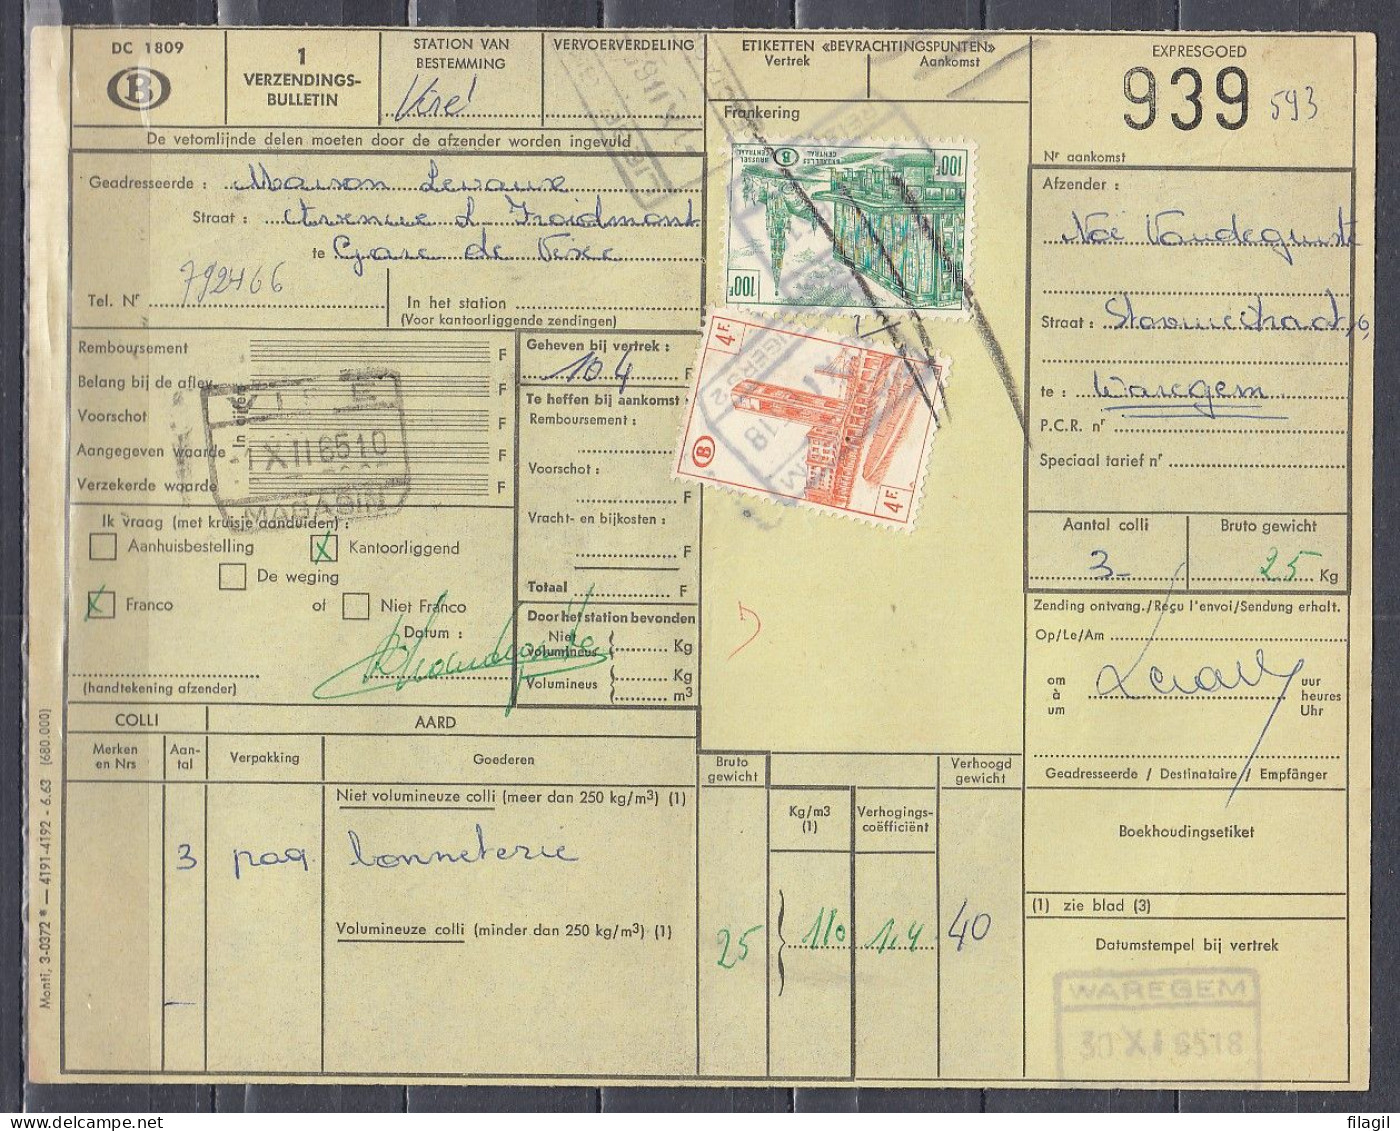 DC 1809
B
1
VERZENDINGS-
BULLETIN
STATION VAN
BESTEMMING
Visé
VERVOERVERDELING
ETIKETTEN «BEVRACHTINGSPUNTEN»
Vertrek Aankomst
EXPRESGOED
939 593
Nr aankomst
De vetomlijnde delen moeten door de afzender worden ingevuld
Frankering
Geadresseerde : Maison Levaux
Straat : Avenue d Froidmont
te Gare de Visé
Tel. Nr 792466
In het station
(Voor kantoorliggende zendingen)
100F
BRUSSEL CENTRAAL
B
BRUXELLES CENTRAL
100F
100F
4 F.
B
4 F.
Afzender :
Noë Vandeguste
Straat : Stormestraat, 6,
te : Waregem
P.C.R. nr
Speciaal tarief nr
Aantal colli
3-
Bruto gewicht
25 Kg
Remboursement F
Belang bij de aflev. F
Voorschot F
Aangegeven waarde F
Verzekerde waarde F
In cijfers
1 XII 65 10
MAGASIN
Geheven bij vertrek :
104 F
Te heffen bij aankomst :
Remboursement :
F
Voorschot :
F
Vracht- en bijkosten :
F
Totaal F
Ik vraag (met kruisje aanduiden) :
Aanhuisbestelling X Kantoorliggend
De weging
X Franco of Niet Franco
Datum :
(handtekening afzender)
Door het station bevonden
Niet
volumineus Kg
Volumineus Kg
m3
Zending ontvang./Reçu l'envoi/Sendung erhalt.
Op/Le/Am
om
à
um
uur
heures
Uhr
Geadresseerde / Destinataire / Empfänger
Boekhoudingsetiket
(1) zie blad (3)
Datumstempel bij vertrek
WAREGEM
30 XI 65 18
COLLI AARD
Merken
en Nrs
Aan-
tal
Verpakking
Goederen
Bruto
gewicht
Kg/m3
(1)
Verhogings-
coëfficiënt
Verhoogd
gewicht
Niet volumineuze colli (meer dan 250 kg/m3) (1)
3 paq. bonneterie
Volumineuze colli (minder dan 250 kg/m3) (1)
25 180 1,4 40
Monti, 3-0372 * — 4191-4192 - 6.63 (680.000)
filagil